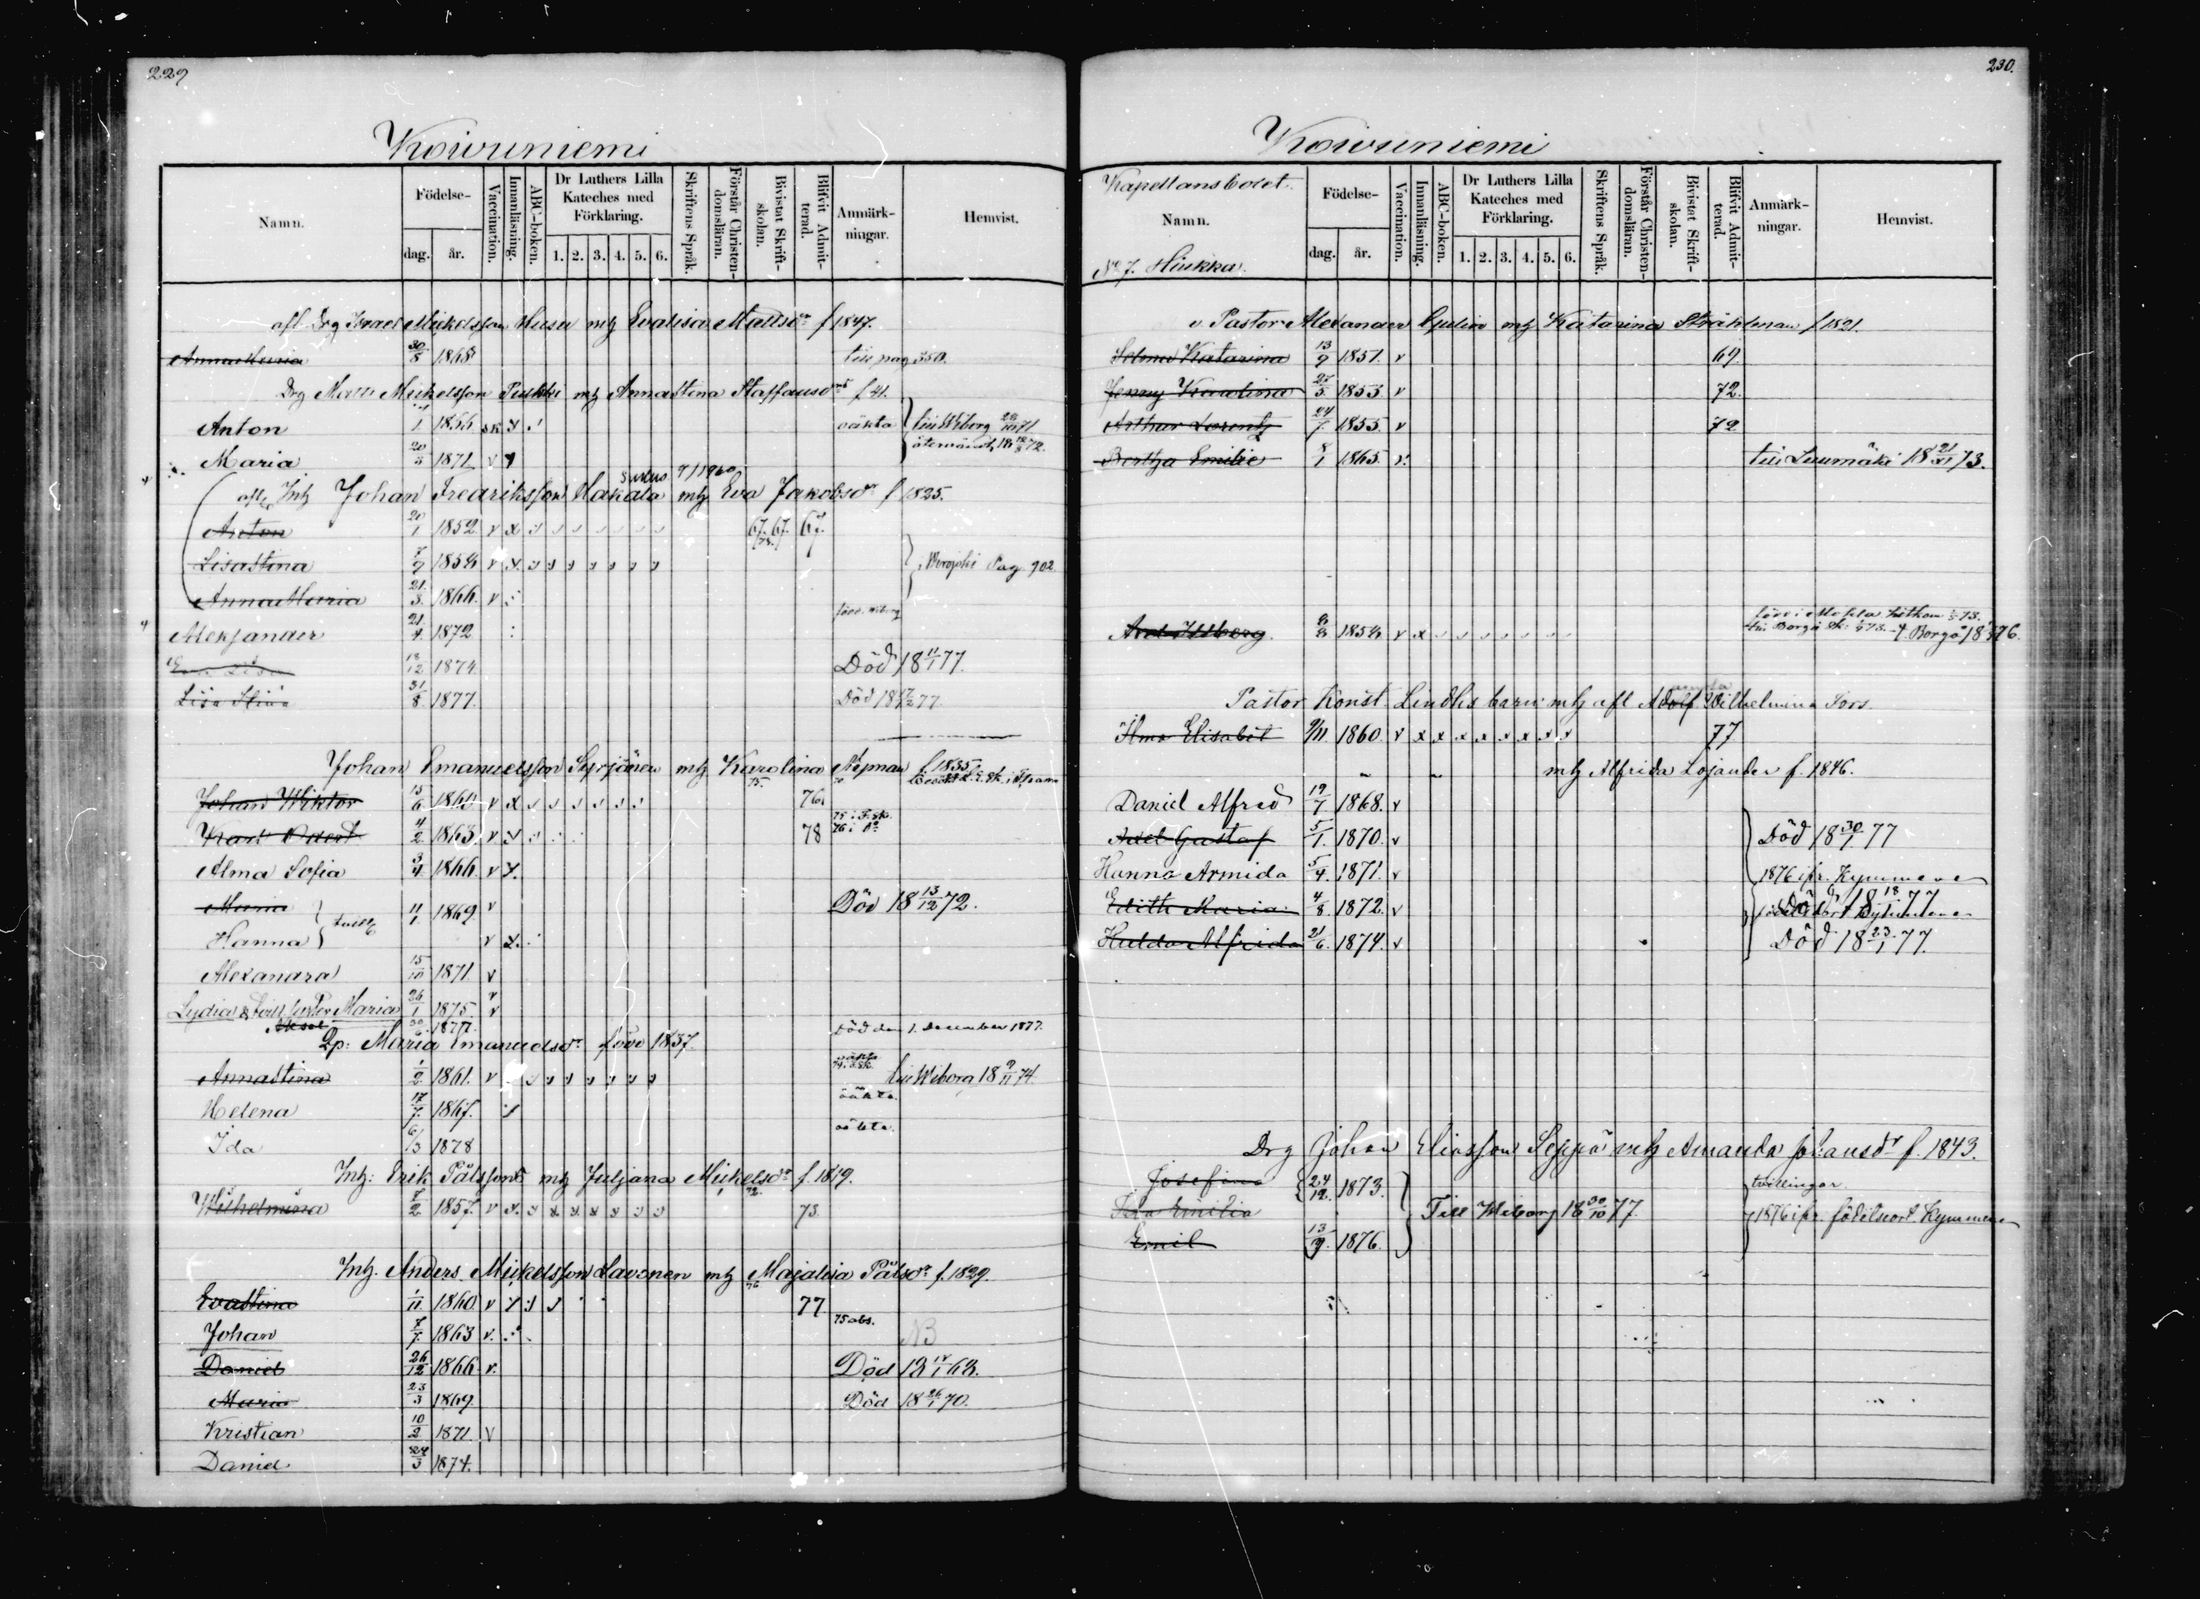 229
Koivuniemi
Namn.
Födelse-
dag.
år.
Vaccination.
Innanläsning.
ABC-boken.
Dr Luthers Lilla Kateches med Förklaring.
1. 2. 3. 4. 5. 6.
Skriftens Språk.
Förstår Christen-domsläran.
Bivistat Skrift-skolan.
Blifvit Admit-terad.
Anmärk-ningar.
Hemvist.
afl Drg Israel Mickelsson Husu mh Evalisa Mattsdr f 1847.
Anna Maria 30/8 1868 till pag 350.
Drg Matts Mickelsson Pukki mh Annastina Staffansdr f 41.
Anton 1866 oäkta till Wiborg
Maria 20/3 1871
afl Inh Johan Fredriksson Hakala mh Eva Jakobsdr f 1825.
Anton 20/1 1852 v x 67. 67. 67.
Lisastina 7/9 1854 v x Pag 902
Anna Maria 21/3 1866. v
Alexander 21/4 1872
1874 Död 18 11/1 77.
Lisa Stina 31/8 1877. Död 18 77
Johan Emanuelsson Syrjänen mh Karolina Nyman f 1835
Johan Wiktor 15/6 1860 v x 76
Karl 4/2 1863 v 78
Alma Sofia 3/4 1866 v x.
Maria 11/1 1869 v Död 18 13/12 72.
Hanna v x.
Alexandra 15/10 1871 v
Lydia & Maria 26/1 1875 v v
Aksel 1877. Död den 1. December 1877.
Qp: Maria Emanuelsdr född 1837.
Annastina 1/2 1861. v till Wiborg 18 9/11 74.
Helena 17/7. 1867. oäkta.
Ida 6/3 1878 oäkta.
Inh: Erik Pålsson mh Juljana Mickelsdr f. 1819.
Wilhelmina 7/2 1857. v x 73.
Inh. Anders Mickelsson Lavonen mh Majalisa Pålsdr f. 1829.
Evastina 1/11 1860 v 77
Johan 7/7. 1863 v. 75 abs. NB
Daniel 26/12 1866 v. Död
Maria 23/3 1869 Död 18 26/1 70.
Kristian 10/2 1871 v
Daniel 24/3 1874.
230.
Koivuniemi
Kapellansbolet.
Namn.
No 7. Hiukka.
Födelse-
dag.
år.
Vaccination.
Innanläsning.
ABC-boken.
Dr Luthers Lilla Kateches med Förklaring.
1. 2. 3. 4. 5. 6.
Skriftens Språk.
Förstår Christen-domsläran.
Bivistat Skrift-skolan.
Blifvit Admit-terad.
Anmärk-ningar.
Hemvist.
v. Pastor Alexander mh Katarina Stråhlman f 1821.
Selma Katarina 13/9 1851. v 69.
Jenny Karolina 27/5 1853 v 72.
Arthur Lorentz 24/7 1855. v 72
Bertha Emilie 8/1 1865. v. till Luumäki 18 21/11 73.
1854 v x Borgå
Pastor Konst. Lindhs barn mh afl Wilhelmina Fors
Ilma Elisabet 9/11 1860. v x x x x x x x x 77
mh Alfrida Lojander f. 1846.
Daniel Alfred 19/7 1868. v
Axel Gustaf 5/1. 1870. v Död 18 30/1 77
Hanna Armida 5/4. 1871. v 1876 ifr. Kymmene
Edith Maria 4/8. 1872. v Död 18 18/1 77
Hulda Alfrida 21/6. 1874. v Död 18 23/1 77.
Drg Johan Eliasson Seppä mh Amanda Johansdr f. 1843.
Josefina 24/12. 1873. tvillingar.
Ida Emilia Till Wiborg 18 30/10 77. 1876 ifr. födelseort Kymmene
Emil 13/9. 1876.